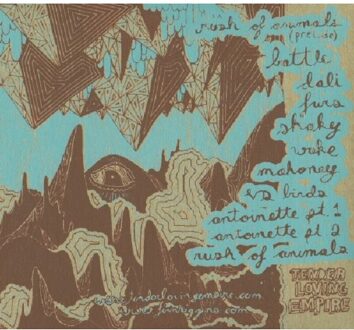 rush of animals
(precise)
battle
dali
furs
shaky
wake
mahoney
v2 birds
antoinette pt. 1
antoinette pt. 2
rush of animals
TENDER
LOVING
EMPIRE
www.tenderlovingempire.com